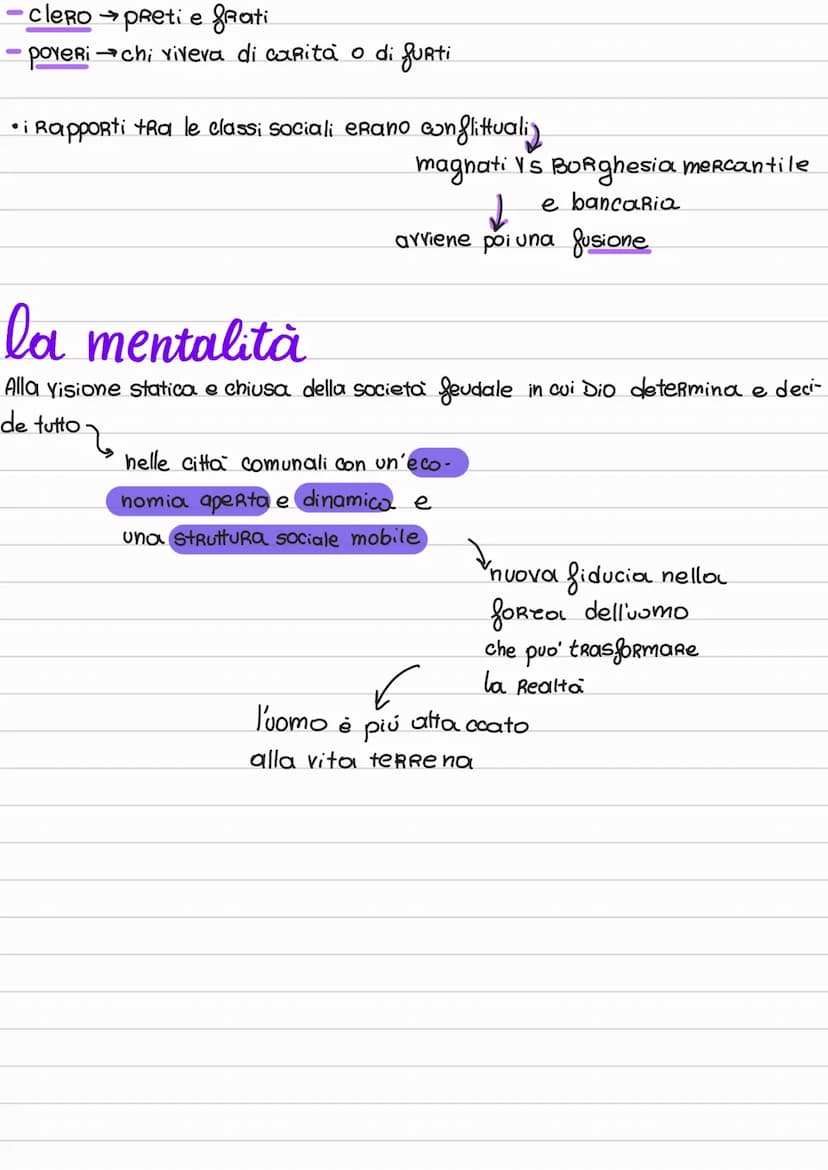 - clero → preti e frati
- poveri → chi viveva di carità o di furti
• i rapporti tra le classi sociali erano conflittuali
magnati vs Borghesia mercantile
e bancaria
avviene poi una fusione
la mentalità
Alla visione statica e chiusa della società feudale in cui Dio determina e deci-
de tutto
nelle città comunali con un'eco-
nomia aperta e dinamica e
una struttura sociale mobile
nuova fiducia nella
forza dell'uomo
che puo' trasformare
la realtà
l'uomo è piú attaccato
alla vita terrena